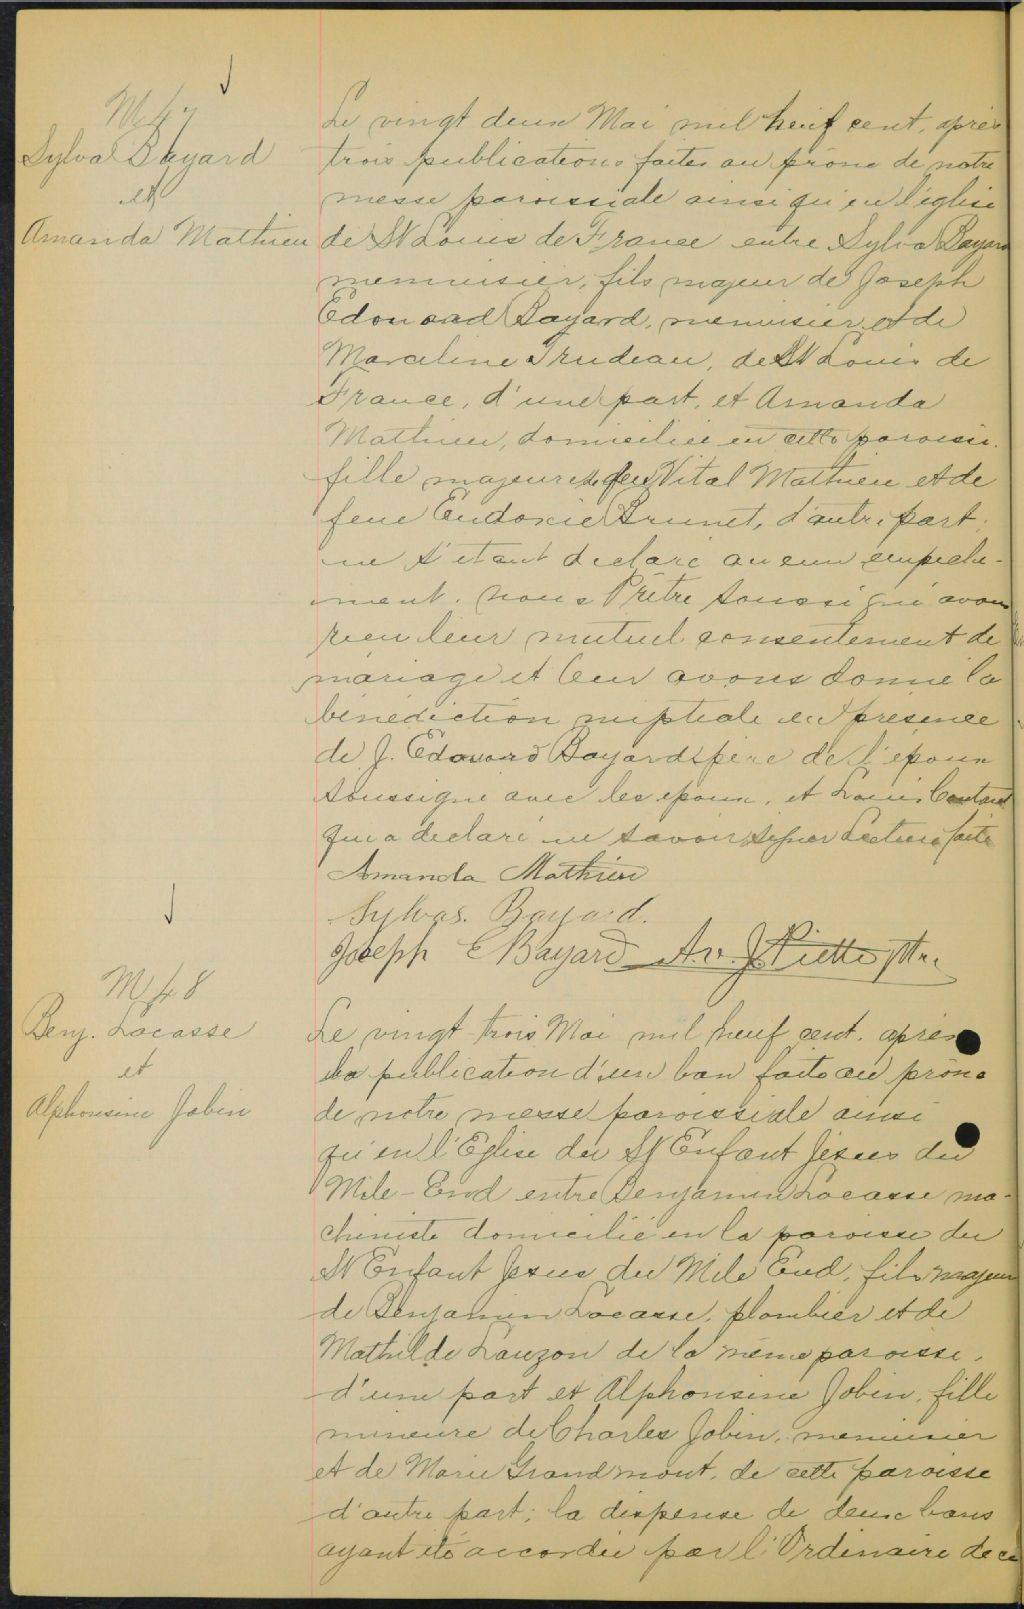 M 47
Sylva Bayard
et
Amanda Mathieu
Le vingt deux Mai mil neuf cent, après
trois publications faites au prône de notre
messe paroissiale ainsi qu'en l'église
de St Louis de France entre Sylva Bayard
menuisier, fils majeur de Joseph
Edouard Bayard, menuisier et de
Marceline Trudeau, de St Louis de
France, d'une part, et Amanda
Mathieu, domiciliée en cette paroisse,
fille majeure de feu Vital Mathieu et de
feue Eudoxie Brunet, d'autre part;
ne s'étant déclaré aucun empêche-
ment, nous Prêtre soussigné avons
reçu leur mutuel consentement de
mariage et leur avons donné la
bénédiction nuptiale en présence
de J. Edouard Bayard père de l'époux
soussigné avec les époux, et Louis
qui a déclaré ne savoir signer Lecture faite
Amanda Mathieu
Sylvas. Bayard.
Joseph E Bayard Av. J. Piette Ptre
M 48
Benj. Lacasse
et
Alphonsine Jobin
Le vingt-trois Mai mil neuf cent, après
la publication d'un ban faite au prône
de notre messe paroissiale ainsi
qu'en l'Eglise du St Enfant Jésus du
Mile-End entre Benjamin Lacasse ma-
chiniste domicilié en la paroisse du
St Enfant Jésus du Mile End, fils majeur
de Benjamin Lacasse, plombier et de
Mathilde Lauzon de la même paroisse,
d'une part et Alphonsine Jobin, fille
mineure de Charles Jobin, menuisier
et de Marie Grandmont, de cette paroisse
d'autre part; la dispense de deux bans
ayant été accordée par l'Ordinaire de ce